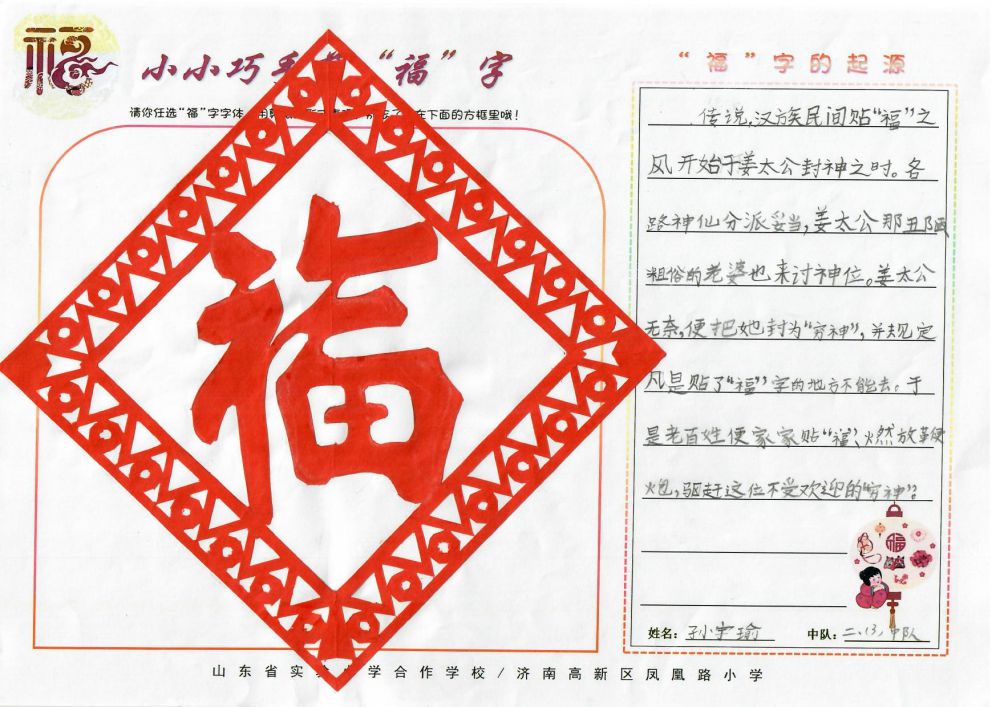 福
小小巧手 “福”字
请你任选“福”字字体 在下面的方框里哦！
福
“福”字的起源
传说，汉族民间贴“福”之
风开始于姜太公封神之时。各
路神仙分派妥当，姜太公那丑陋
粗俗的老婆也来讨神位。姜太公
无奈，便把她封为“穷神”，并规定
凡是贴了“福”字的地方不能去。于
是老百姓便家家贴“福”、燃放鞭
炮，驱赶这位不受欢迎的“穷神”。
福
姓名：孙宇瑜 中队：二、(3)中队
山东省实 学合作学校/济南高新区凤凰路小学